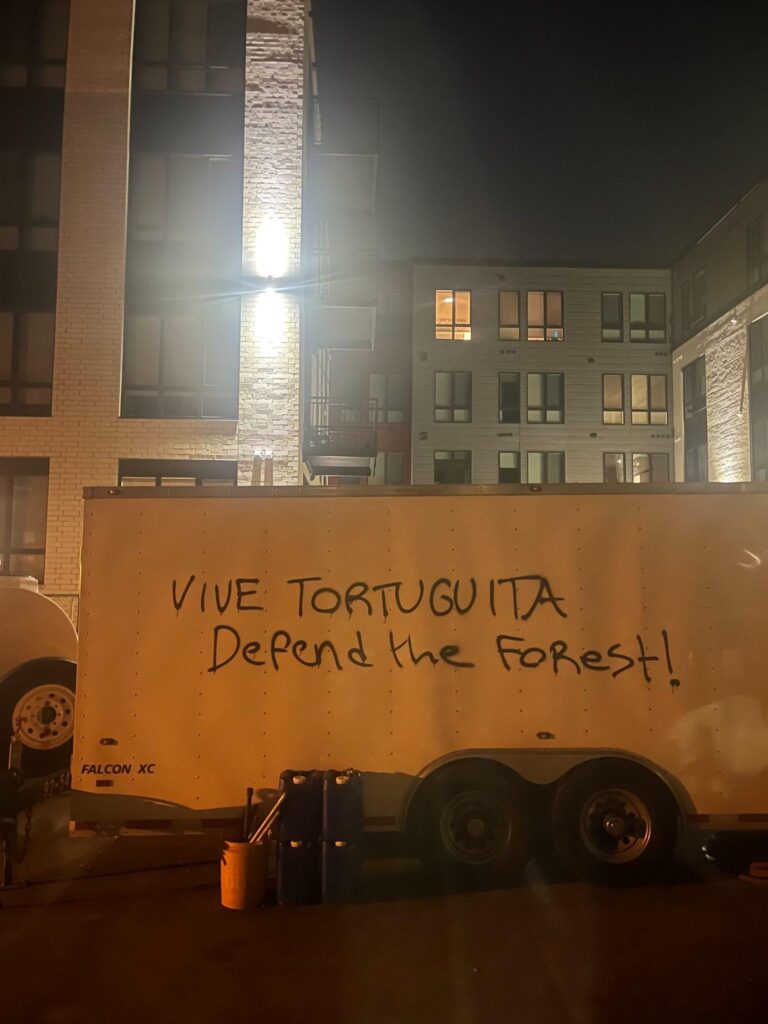 VIVE TORTUGUITA
Defend the Forest!
FALCON XC